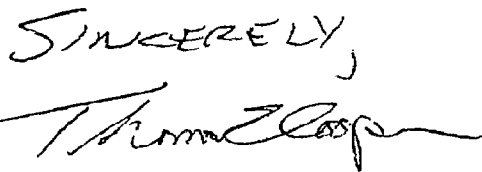 SINCERELY,
Thomas E Cooper